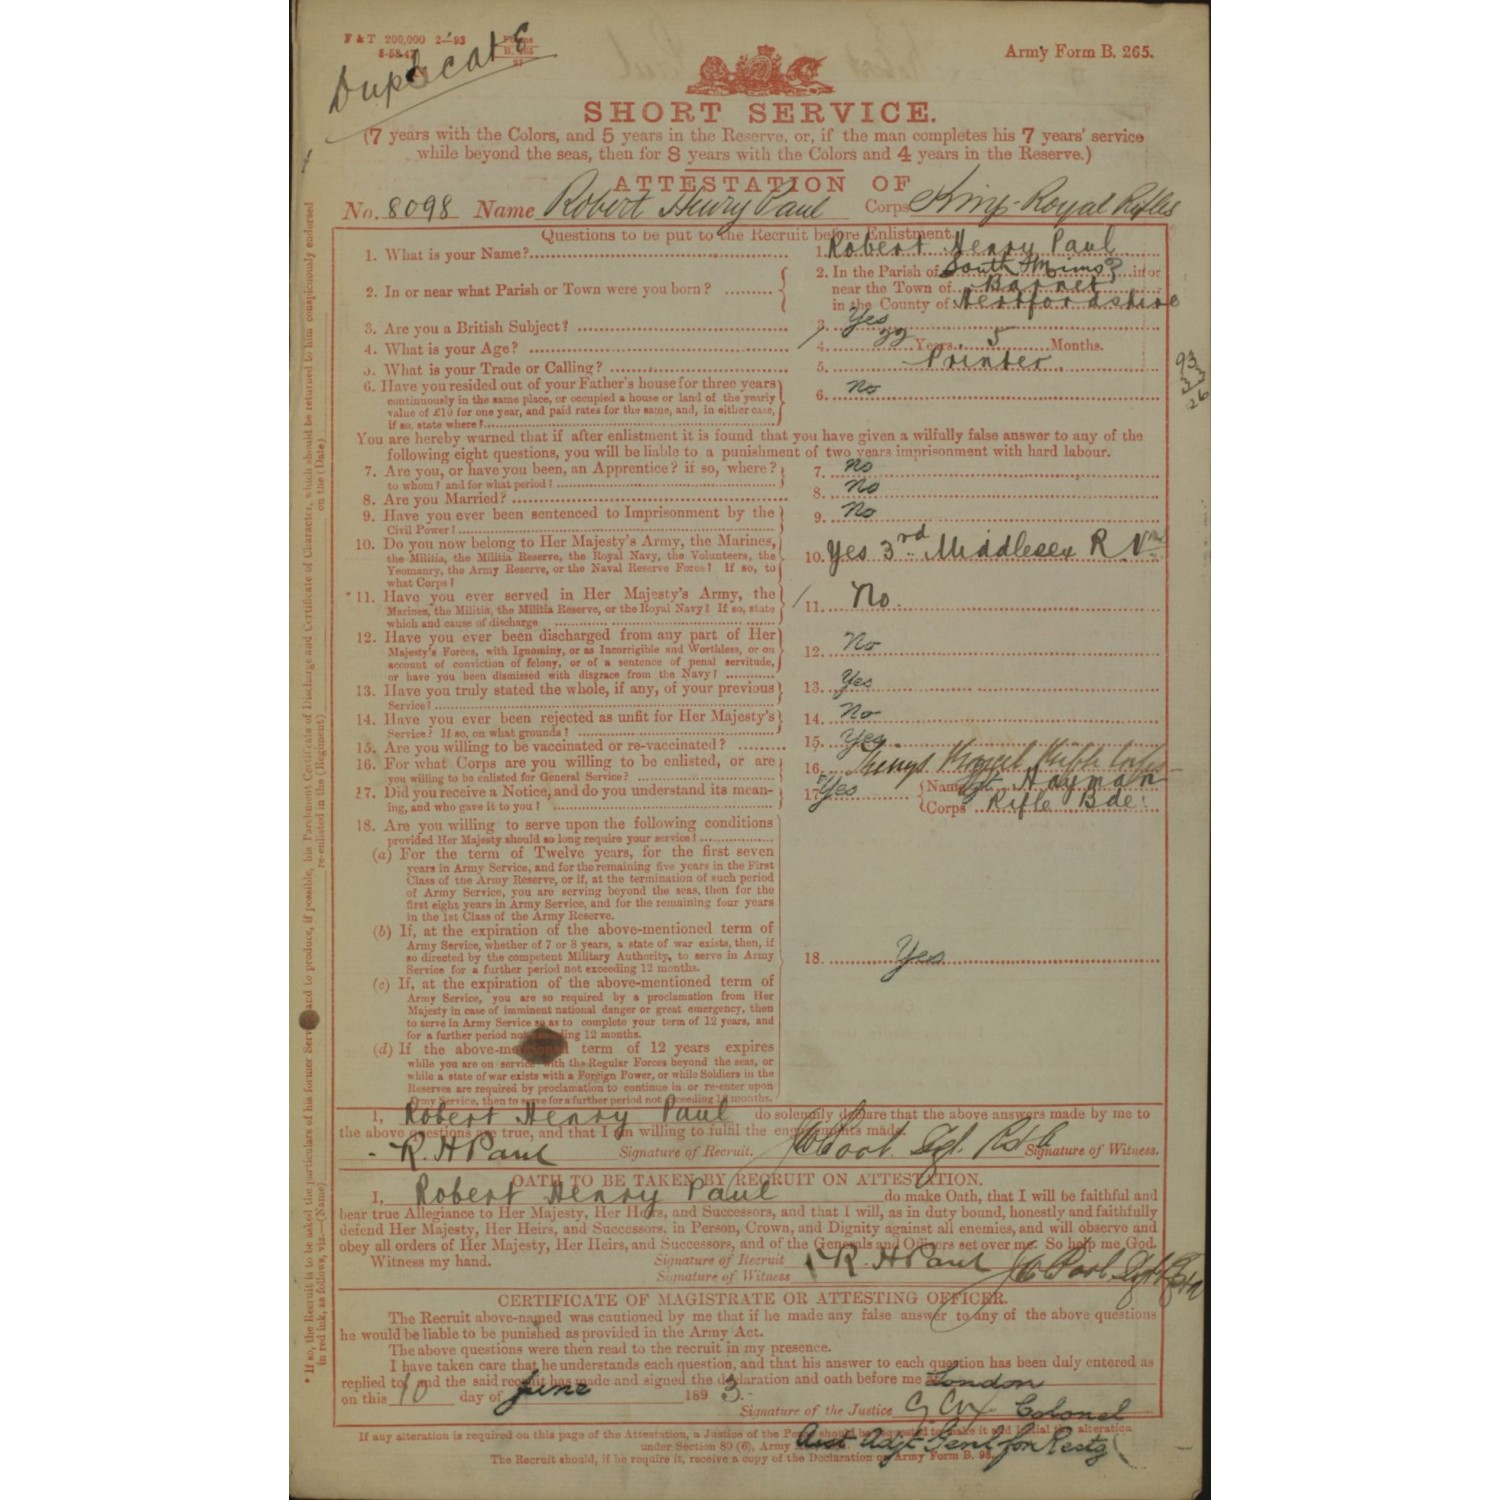 F & T 200,000 2-93
Forms
B. 265
Army Form B. 265.
Duplicate
SHORT SERVICE.
(7 years with the Colors, and 5 years in the Reserve, or, if the man completes his 7 years' service
while beyond the seas, then for 8 years with the Colors and 4 years in the Reserve.)
ATTESTATION OF
No. 8098 Name Robert Henry Paul Corps Kings Royal Rifles
Questions to be put to the Recruit before Enlistment.
1. What is your Name? 1. Robert Henry Paul
2. In or near what Parish or Town were you born? 2. In the Parish of South Mims in or
near the Town of Barnet
in the County of Hertfordshire
3. Are you a British Subject? 3. Yes
4. What is your Age? 4. 22 Years 5 Months.
5. What is your Trade or Calling? 5. Printer
93
3
3
26
6. Have you resided out of your Father's house for three years 6. No
continuously in the same place, or occupied a house or land of the yearly
value of £10 for one year, and paid rates for the same, and, in either case,
if so, state where?
You are hereby warned that if after enlistment it is found that you have given a wilfully false answer to any of the
following eight questions, you will be liable to a punishment of two years imprisonment with hard labour.
7. Are you, or have you been, an Apprentice? if so, where? 7. No
to whom? and for what period?
8. Are you Married? 8. No
9. Have you ever been sentenced to Imprisonment by the 9. No
Civil Power?
10. Do you now belong to Her Majesty's Army, the Marines, 10. Yes 3rd Middlesex R V
the Militia, the Militia Reserve, the Royal Navy, the Volunteers, the
Yeomanry, the Army Reserve, or the Naval Reserve Force? If so, to
what Corps?
*11. Have you ever served in Her Majesty's Army, the 11. No.
Marines, the Militia, the Militia Reserve, or the Royal Navy? If so, state
which and cause of discharge
12. Have you ever been discharged from any part of Her 12. No
Majesty's Forces, with Ignominy, or as Incorrigible and Worthless, or on
account of conviction of felony, or of a sentence of penal servitude,
or have you been dismissed with disgrace from the Navy?
13. Have you truly stated the whole, if any, of your previous 13. Yes
Service?
14. Have you ever been rejected as unfit for Her Majesty's 14. No
Service? If so, on what grounds?
15. Are you willing to be vaccinated or re-vaccinated? 15. Yes
16. For what Corps are you willing to be enlisted, or are 16. Kings Royal Rifle Corps
you willing to be enlisted for General Service?
17. Did you receive a Notice, and do you understand its mean- 17. Yes Name Sgt. Hayman
ing, and who gave it to you? Corps Rifle Bde.
18. Are you willing to serve upon the following conditions
provided Her Majesty should so long require your service?
(a) For the term of Twelve years, for the first seven
years in Army Service, and for the remaining five years in the First
Class of the Army Reserve, or if, at the termination of such period
of Army Service, you are serving beyond the seas, then for the
first eight years in Army Service, and for the remaining four years
in the 1st Class of the Army Reserve.
(b) If, at the expiration of the above-mentioned term of
Army Service, whether of 7 or 8 years, a state of war exists, then, if
so directed by the competent Military Authority, to serve in Army 18. Yes
Service for a further period not exceeding 12 months.
(c) If, at the expiration of the above-mentioned term of
Army Service, you are so required by a proclamation from Her
Majesty in case of imminent national danger or great emergency, then
to serve in Army Service so as to complete your term of 12 years, and
for a further period not exceeding 12 months.
(d) If the above-mentioned term of 12 years expires
while you are on service with the Regular Forces beyond the seas, or
while a state of war exists with a Foreign Power, or while Soldiers in the
Reserves are required by proclamation to continue in or re-enter upon
Army Service, then to serve for a further period not exceeding 12 months.
I, Robert Henry Paul do solemnly declare that the above answers made by me to
the above questions are true, and that I am willing to fulfil the engagements made.
R. H Paul Signature of Recruit. Sgt. Signature of Witness.
OATH TO BE TAKEN BY RECRUIT ON ATTESTATION.
I, Robert Henry Paul do make Oath, that I will be faithful and
bear true Allegiance to Her Majesty, Her Heirs, and Successors, and that I will, as in duty bound, honestly and faithfully
defend Her Majesty, Her Heirs, and Successors, in Person, Crown, and Dignity against all enemies, and will observe and
obey all orders of Her Majesty, Her Heirs, and Successors, and of the Generals and Officers set over me. So help me God.
Witness my hand. Signature of Recruit R. H Paul
Signature of Witness Sgt
CERTIFICATE OF MAGISTRATE OR ATTESTING OFFICER.
The Recruit above-named was cautioned by me that if he made any false answer to any of the above questions
he would be liable to be punished as provided in the Army Act.
The above questions were then read to the recruit in my presence.
I have taken care that he understands each question, and that his answer to each question has been duly entered as
replied to, and the said recruit has made and signed the declaration and oath before me at London
on this 10 day of June 1893.
Signature of the Justice G Cox Colonel
Asst Adjt Genl for Rectg
If any alteration is required on this page of the Attestation, a Justice of the Peace should be requested to make it and initial the alteration
under Section 80 (6), Army Act.
The Recruit should, if he require it, receive a copy of the Declaration on Army Form B. 98.
* If so, the Recruit is to be asked the particulars of his former Service and to produce, if possible, his Parchment Certificate of Discharge and Certificate of Character, which should be returned to him conspicuously endorsed
in red ink, as follows, viz.—(Name) re-enlisted in the (Regiment) on the (Date)